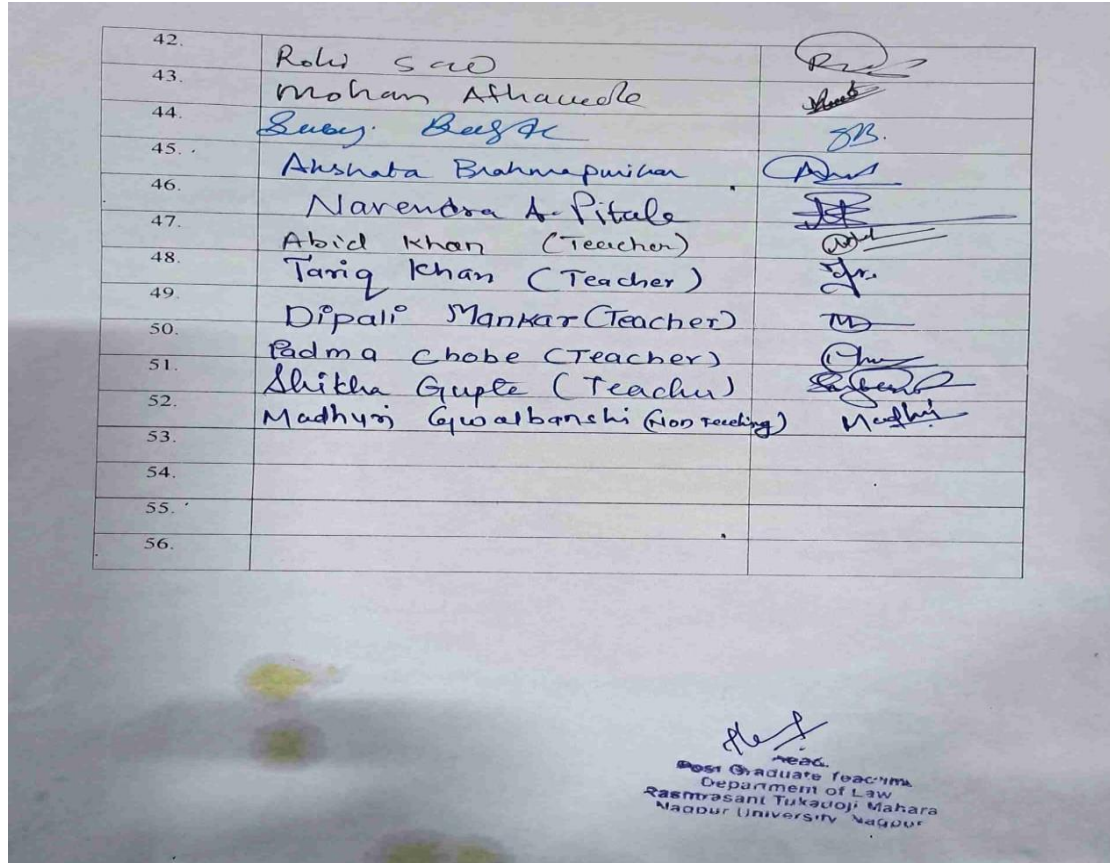 42. Rohi Sao
43. Mohan Athawale
44. Suby.
45. Akshata Brahmapurikar
46. Narendra A. Pitale
47. Abid Khan (Teacher)
48. Tariq Khan (Teacher)
49. Dipali Mankar (Teacher)
50. Padma Chobe (Teacher)
51. Shikha Gupta (Teacher)
52. Madhuri Gwalbanshi (Non Teaching) Madhuri
53.
54.
55.
56.
Head
Post Graduate Teaching
Department of Law
Rashtrasant Tukadoji Mahara
Nagpur University Nagpur